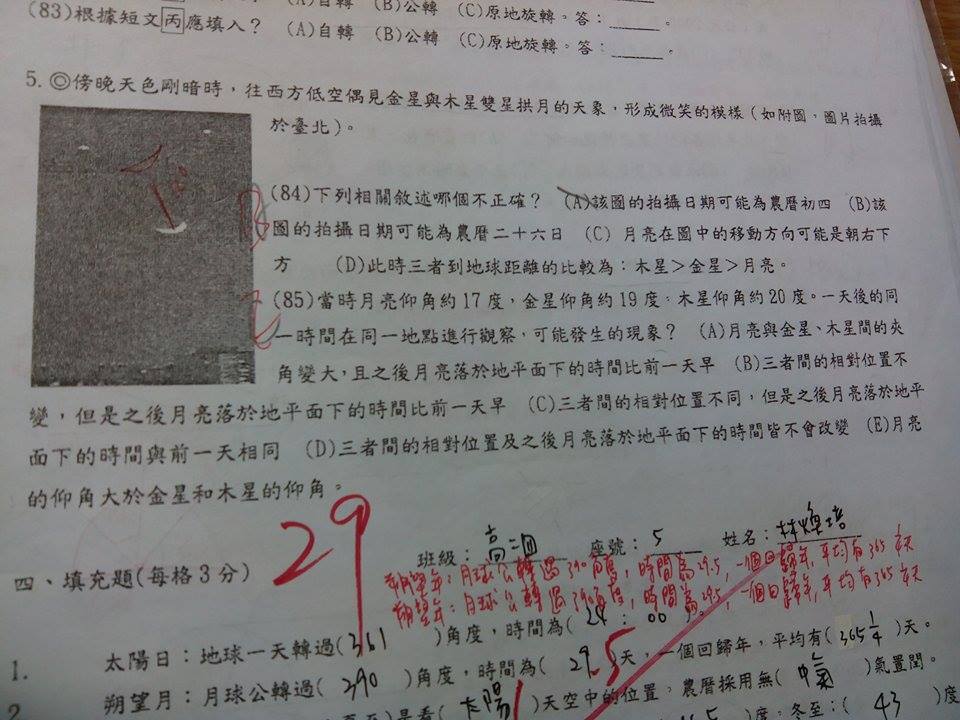 (A)自轉 (B)公轉 (C)原地旋轉。答：
(83)根據短文丙應填入？ (A)自轉 (B)公轉 (C)原地旋轉。答：
5. ◎傍晚天色剛暗時，往西方低空偶見金星與木星雙星拱月的天象，形成微笑的模樣(如附圖，圖片拍攝
於臺北)。
(84)下列相關敘述哪個不正確？ (A)該圖的拍攝日期可能為農曆初四 (B)該
圖的拍攝日期可能為農曆二十六日 (C) 月亮在圖中的移動方向可能是朝右下
方 (D)此時三者到地球距離的比較為：木星＞金星＞月亮。
B
(85)當時月亮仰角約17度，金星仰角約19度，木星仰角約20度。一天後的同
一時間在同一地點進行觀察，可能發生的現象？ (A)月亮與金星、木星間的夾
角變大，且之後月亮落於地平面下的時間比前一天早 (B)三者間的相對位置不
變，但是之後月亮落於地平面下的時間比前一天早 (C)三者間的相對位置不同，但是之後月亮落於地平
面下的時間與前一天相同 (D)三者間的相對位置及之後月亮落於地平面下的時間皆不會改變 (E)月亮
的仰角大於金星和木星的仰角。
29
班級： 座號：5 姓名：林煌培
四、填充題(每格3分)
朔望年：月球公轉過390角度，時間為29.5，一個回歸年，平均有365天
朔望年：月球公轉過390角度，時間為29.5，一個回歸年，平均有365天
1. 太陽日：地球一天轉過(361)角度，時間為(24：00)。
朔望月：月球公轉過(390)角度，時間為(29.5天，一個回歸年，平均有(365¼)天。
2
)是看(太陽)天空中的位置，農曆採用無(中氣)氣置閏。
.5)度。冬至：(43)度